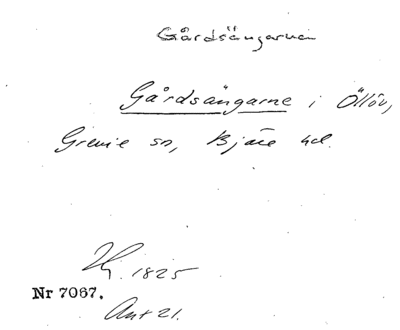 Gårdsängarna
Gårdsängarne i Öllöv,
Grevie sn, Bjäre hd.
Hj. 1825
Nr 7067.
Ant 21.